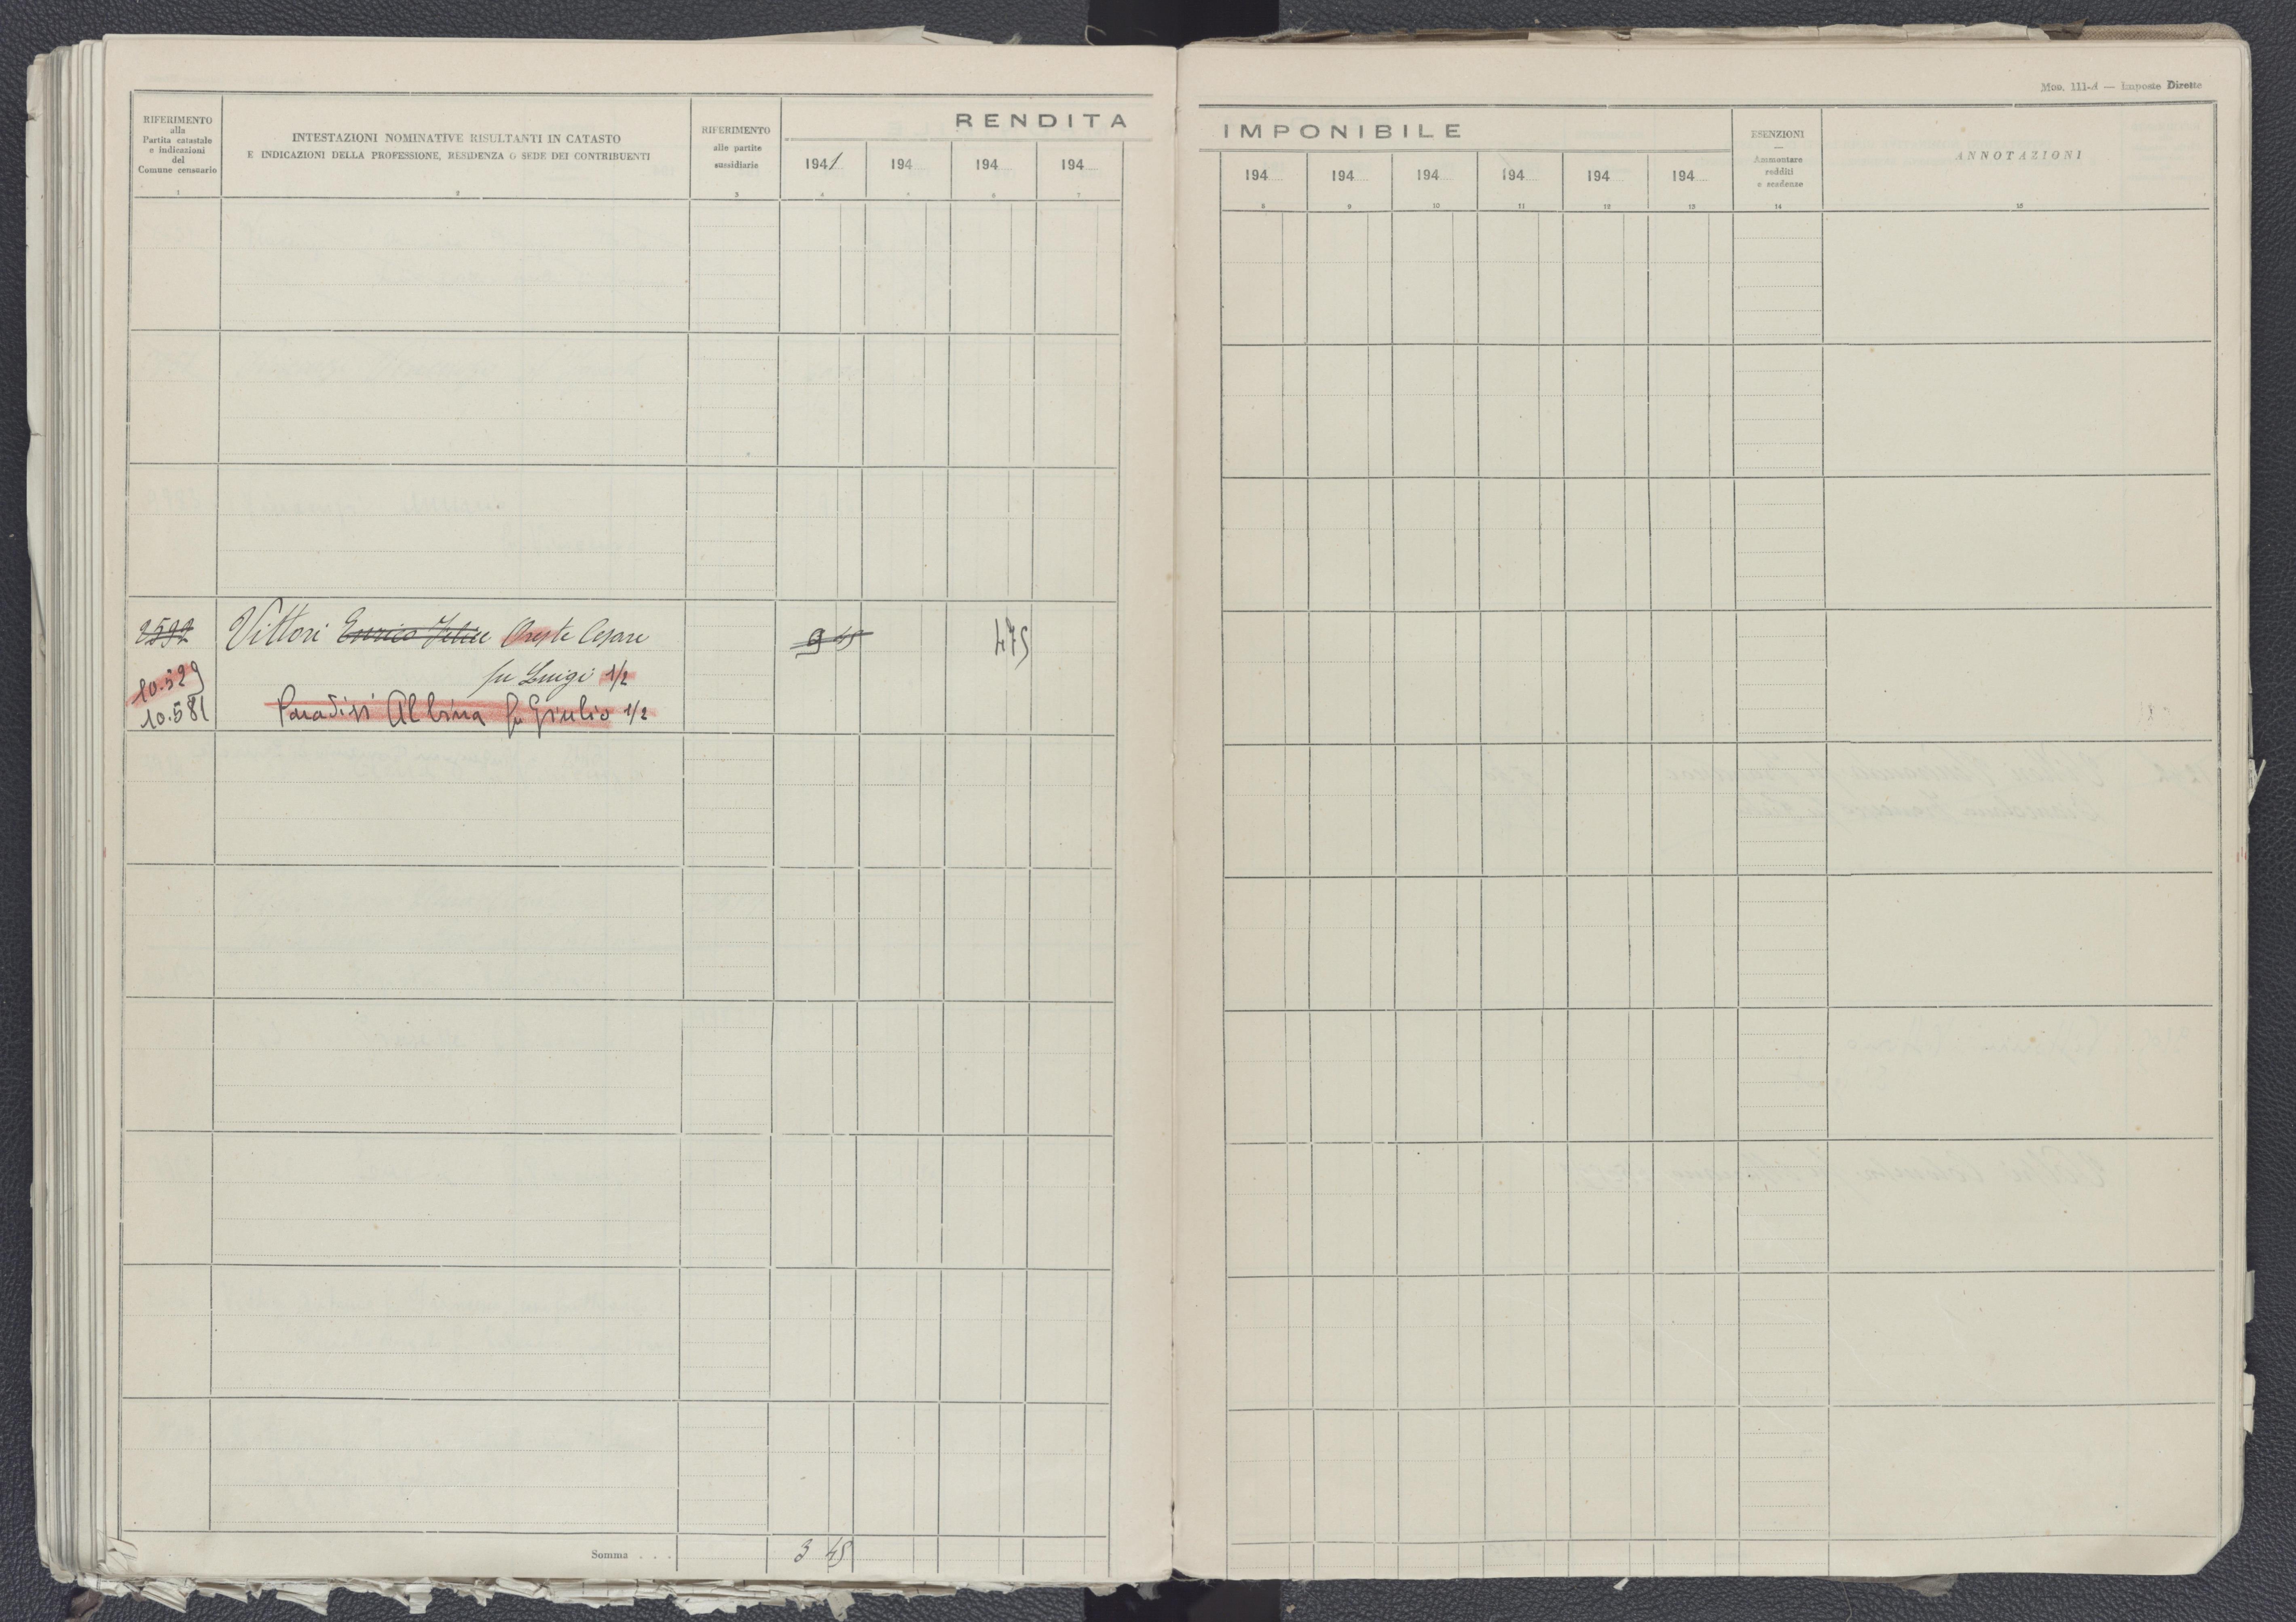 Mod. 111-A — Imposte Dirette
RENDITA IMPONIBILE
RIFERIMENTO
alla
Partita catastale
e indicazioni
del
Comune censuario
INTESTAZIONI NOMINATIVE RISULTANTI IN CATASTO
E INDICAZIONI DELLA PROFESSIONE, RESIDENZA O SEDE DEI CONTRIBUENTI
RIFERIMENTO
alle partite
sussidiarie
1941 194 194 194
194 194 194 194 194 194
ESENZIONI
—
Ammontare
redditi
e scadenze
ANNOTAZIONI
1 2 3 4 5 6 7 8 9 10 11 12 13 14 15
2592 Vittori Enrico Felice Oreste Cesare 9 45 475
fu Luigi 1/2
10.529
10.581 Paradisi Albina fu Giulio 1/2
Somma . . . 3 45